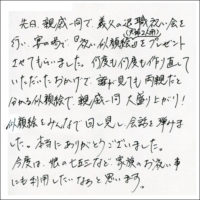 先日、親戚一同で、義父の退職祝い会を
行い、宴の場で、祝い似顔絵(夫婦2人用)をプレゼント
させてもらいました。何度も何度も作り直して
いただいたおかげで、誰が見ても両親だと
わかる似顔絵で、親戚一同 大盛り上がり!
似顔絵をみんなで回し見し、会話も弾みま
した。本当にありがとうございました。
今度は、娘の七五三など、家族のお祝い事
にも利用したいなあと思います。